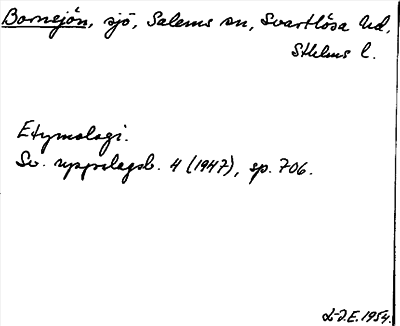 Bornsjön, sjö, Salems sn, Svartlösa hd,
Sthlms l.
Etymologi.
Sv. uppslagsb. 4 (1947), sp. 706.
L-J.E. 1954.